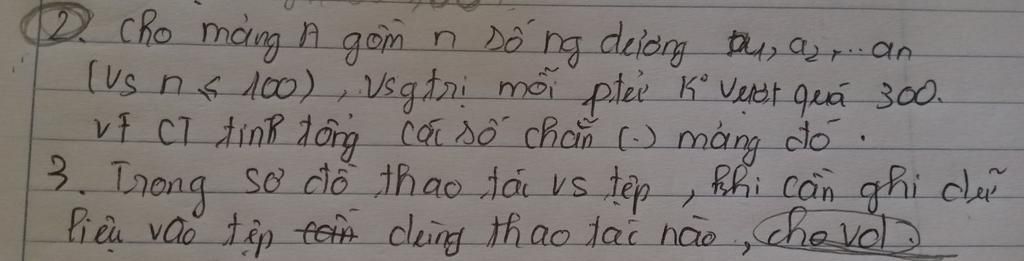 2. Cho mảng A gồm n số ng dương a1, a2, ... an
(vs n ≤ 100), vs gtrị mỗi ptử K° vượt quá 300.
vt CT tính tổng các số chẵn (.) mảng đó.
3. Trong sơ đồ thao tác vs tệp, khi cần ghi dữ
liệu vào tệp dùng thao tác nào, cho vd.